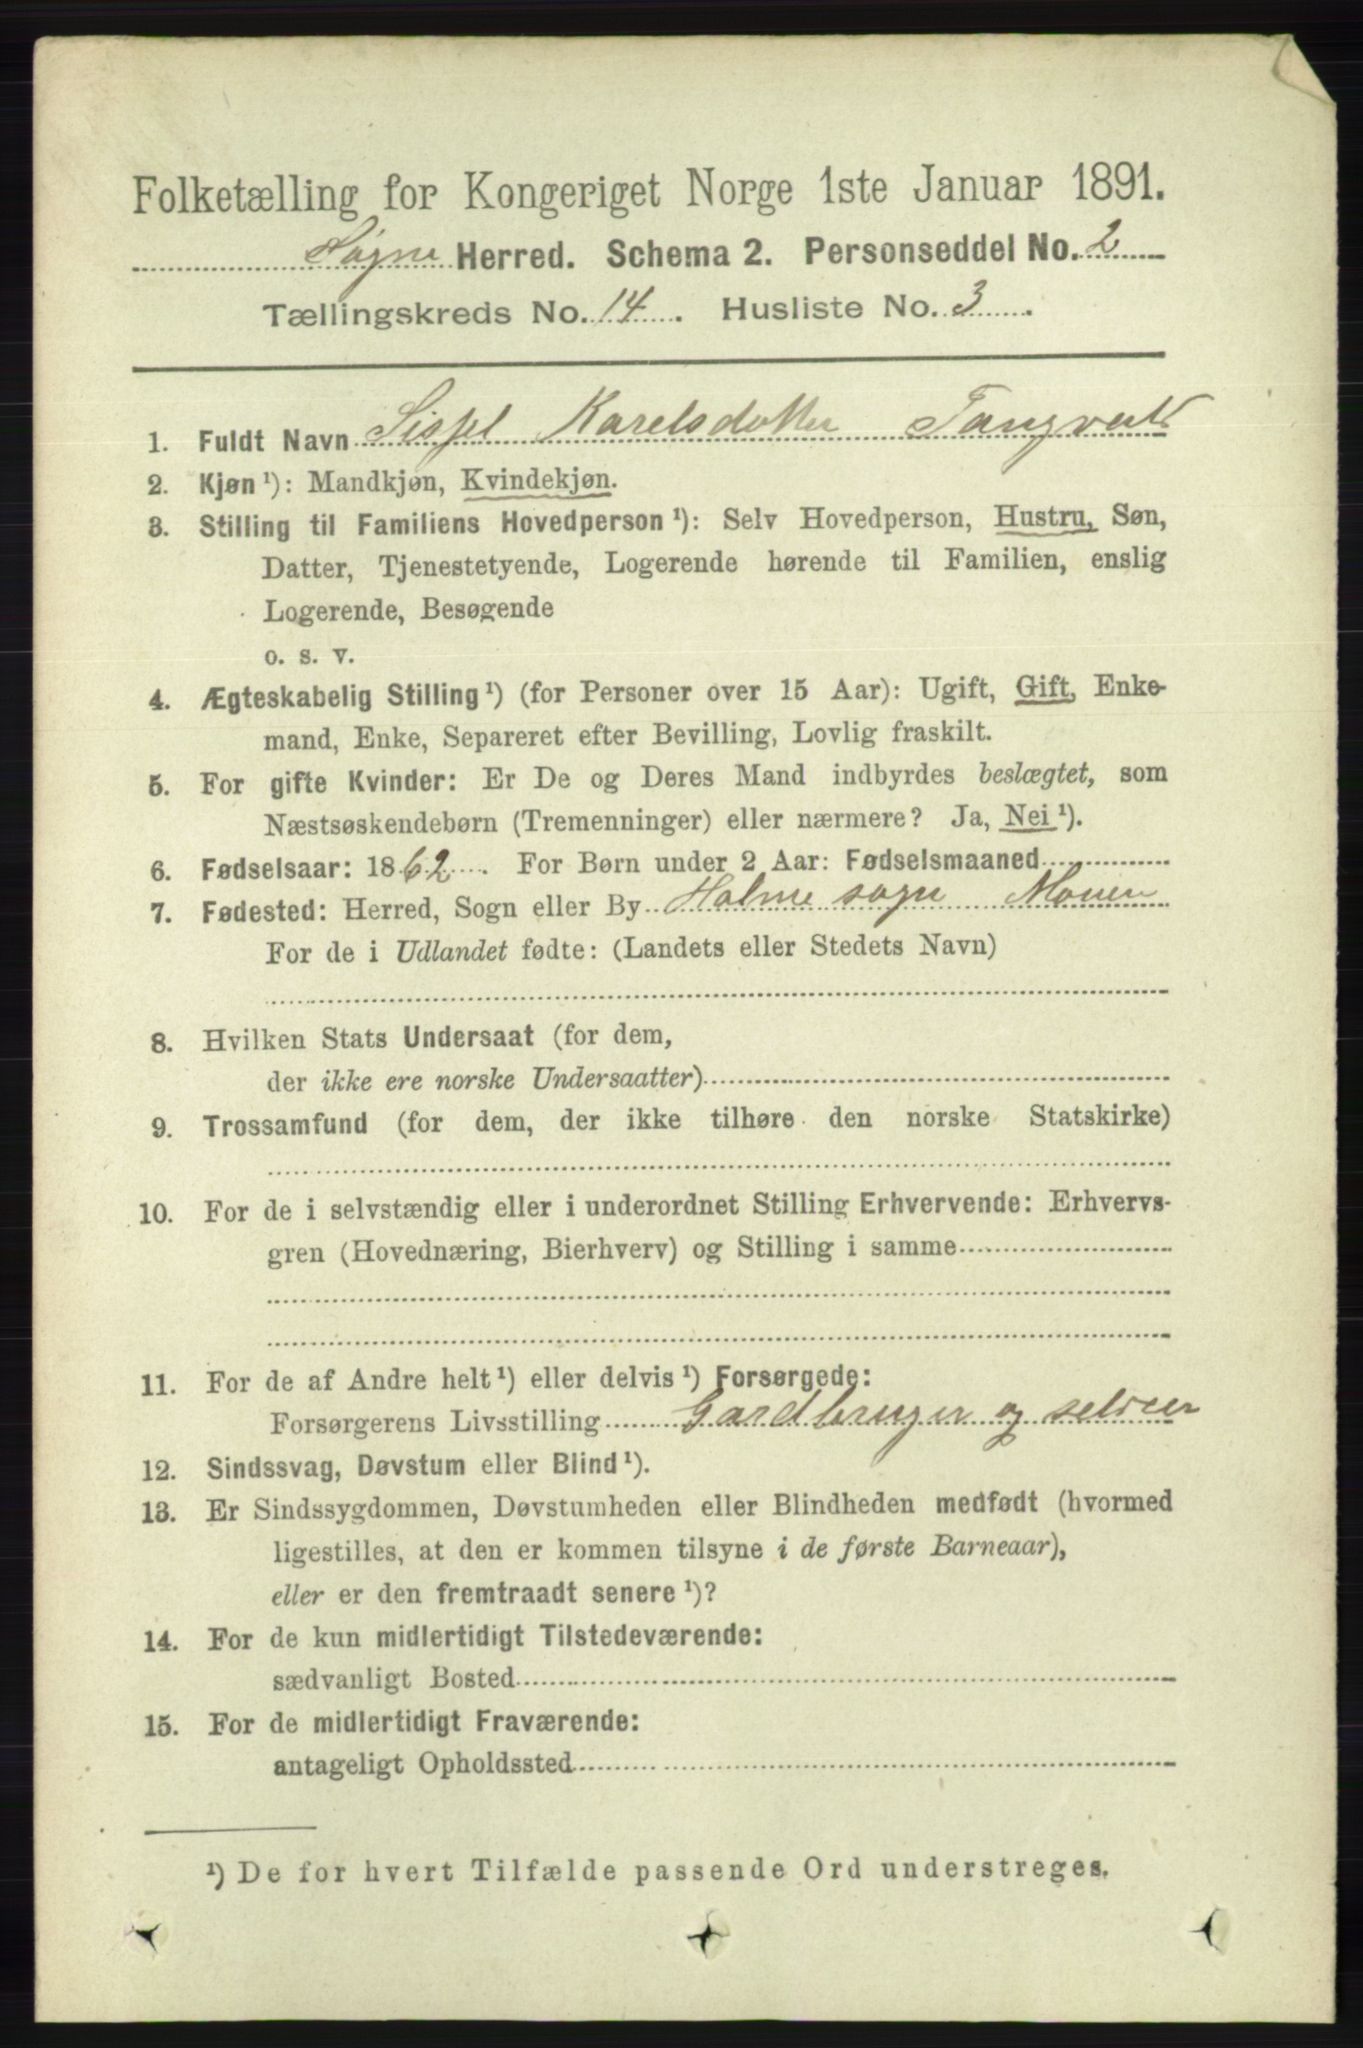 Folketælling for Kongeriget Norge 1ste Januar 1891.
Søgne Herred. Schema 2. Personseddel No. 2
Tællingskreds No. 14. Husliste No. 3.
1. Fuldt Navn Sissel Karelsdotter Tangvald
2. Kjøn ¹): Mandkjøn, Kvindekjøn.
3. Stilling til Familiens Hovedperson ¹): Selv Hovedperson, Hustru, Søn,
Datter, Tjenestetyende, Logerende hørende til Familien, enslig
Logerende, Besøgende
o. s. v.
4. Ægteskabelig Stilling ¹) (for Personer over 15 Aar): Ugift, Gift, Enke-
mand, Enke, Separeret efter Bevilling, Lovlig fraskilt.
5. For gifte Kvinder: Er De og Deres Mand indbyrdes beslægtet, som
Næstsøskendebørn (Tremenninger) eller nærmere? Ja, Nei ¹).
6. Fødselsaar: 1862. For Børn under 2 Aar: Fødselsmaaned
7. Fødested: Herred, Sogn eller By Holme sogn
For de i Udlandet fødte: (Landets eller Stedets Navn)
8. Hvilken Stats Undersaat (for dem,
der ikke ere norske Undersaatter)
9. Trossamfund (for dem, der ikke tilhøre den norske Statskirke)
10. For de i selvstændig eller i underordnet Stilling Erhvervende: Erhvervs-
gren (Hovednæring, Bierhverv) og Stilling i samme
11. For de af Andre helt ¹) eller delvis ¹) Forsørgede:
Forsørgerens Livsstilling Gardbruger og selveier
12. Sindssvag, Døvstum eller Blind ¹).
13. Er Sindssygdommen, Døvstumheden eller Blindheden medfødt (hvormed
ligestilles, at den er kommen tilsyne i de første Barneaar),
eller er den fremtraadt senere ¹)?
14. For de kun midlertidigt Tilstedeværende:
sædvanligt Bosted
15. For de midlertidigt Fraværende:
antageligt Opholdssted
¹) De for hvert Tilfælde passende Ord understreges.